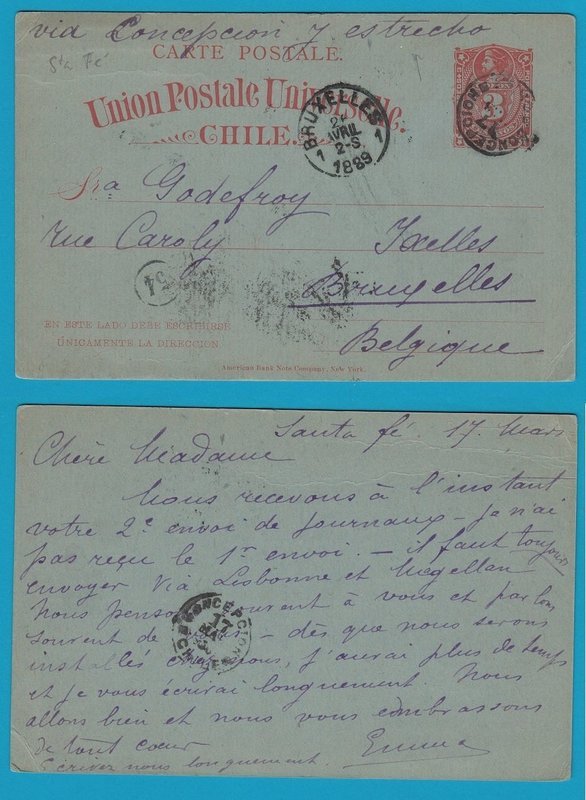 via Concepcion y estrecho
Sta Fé
CARTE POSTALE.
Union Postale Universelle.
CHILE.
BRUXELLES
AVRIL
2-S
1 1
1889
CONCEPCION
3
Sra Godefroy
rue Caroly Ixelles
54
Bruxelles
Belgique
EN ESTE LADO DEBE ESCRIBIRSE
ÚNICAMENTE LA DIRECCION
American Bank Note Company, New York.
Santa fé 17. Mars
Chère Madame
Nous recevons à l'instant
votre 2e envoi de journaux - je n'ai
pas reçu le 1er envoi. - il faut toujours
envoyer via Lisbonne et Magellan
Nous pensons souvent à vous et parlons
souvent de - dès que nous serons
installés chez nous, j'aurai plus de temps
et je vous écrirai longuement. Nous
allons bien et nous vous embrassons
de tout cœur Emma
Ecrivez nous longuement.
CONCEPCION
17
CHILE